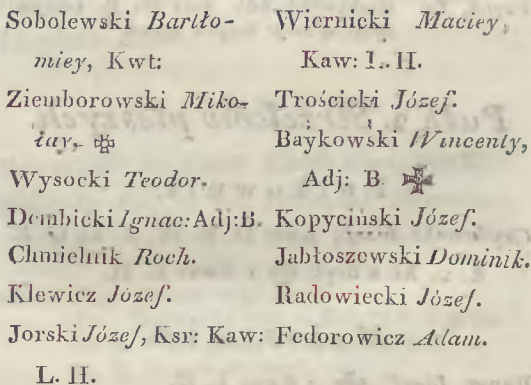 Sobolewski Bartło-
miey, Kwt:
Ziemborowski Miko-
łay, ✠
Wysocki Teodor.
Dembicki Ignac: Adj: B.
Chmielnik Roch.
Klewicz Józef.
Jorski Józef, Ksr: Kaw:
L. H.
Wiernicki Maciey,
Kaw: L. H.
Trościcki Józef.
Baykowski Wincenty,
Adj: B. ✠
Kopyciński Józef.
Jabłoszewski Dominik.
Radowiecki Józef.
Fedorowicz Adam.